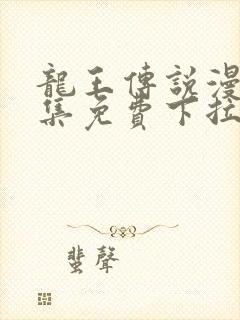 龍王傳説漫
集免費下拉
蜚聲